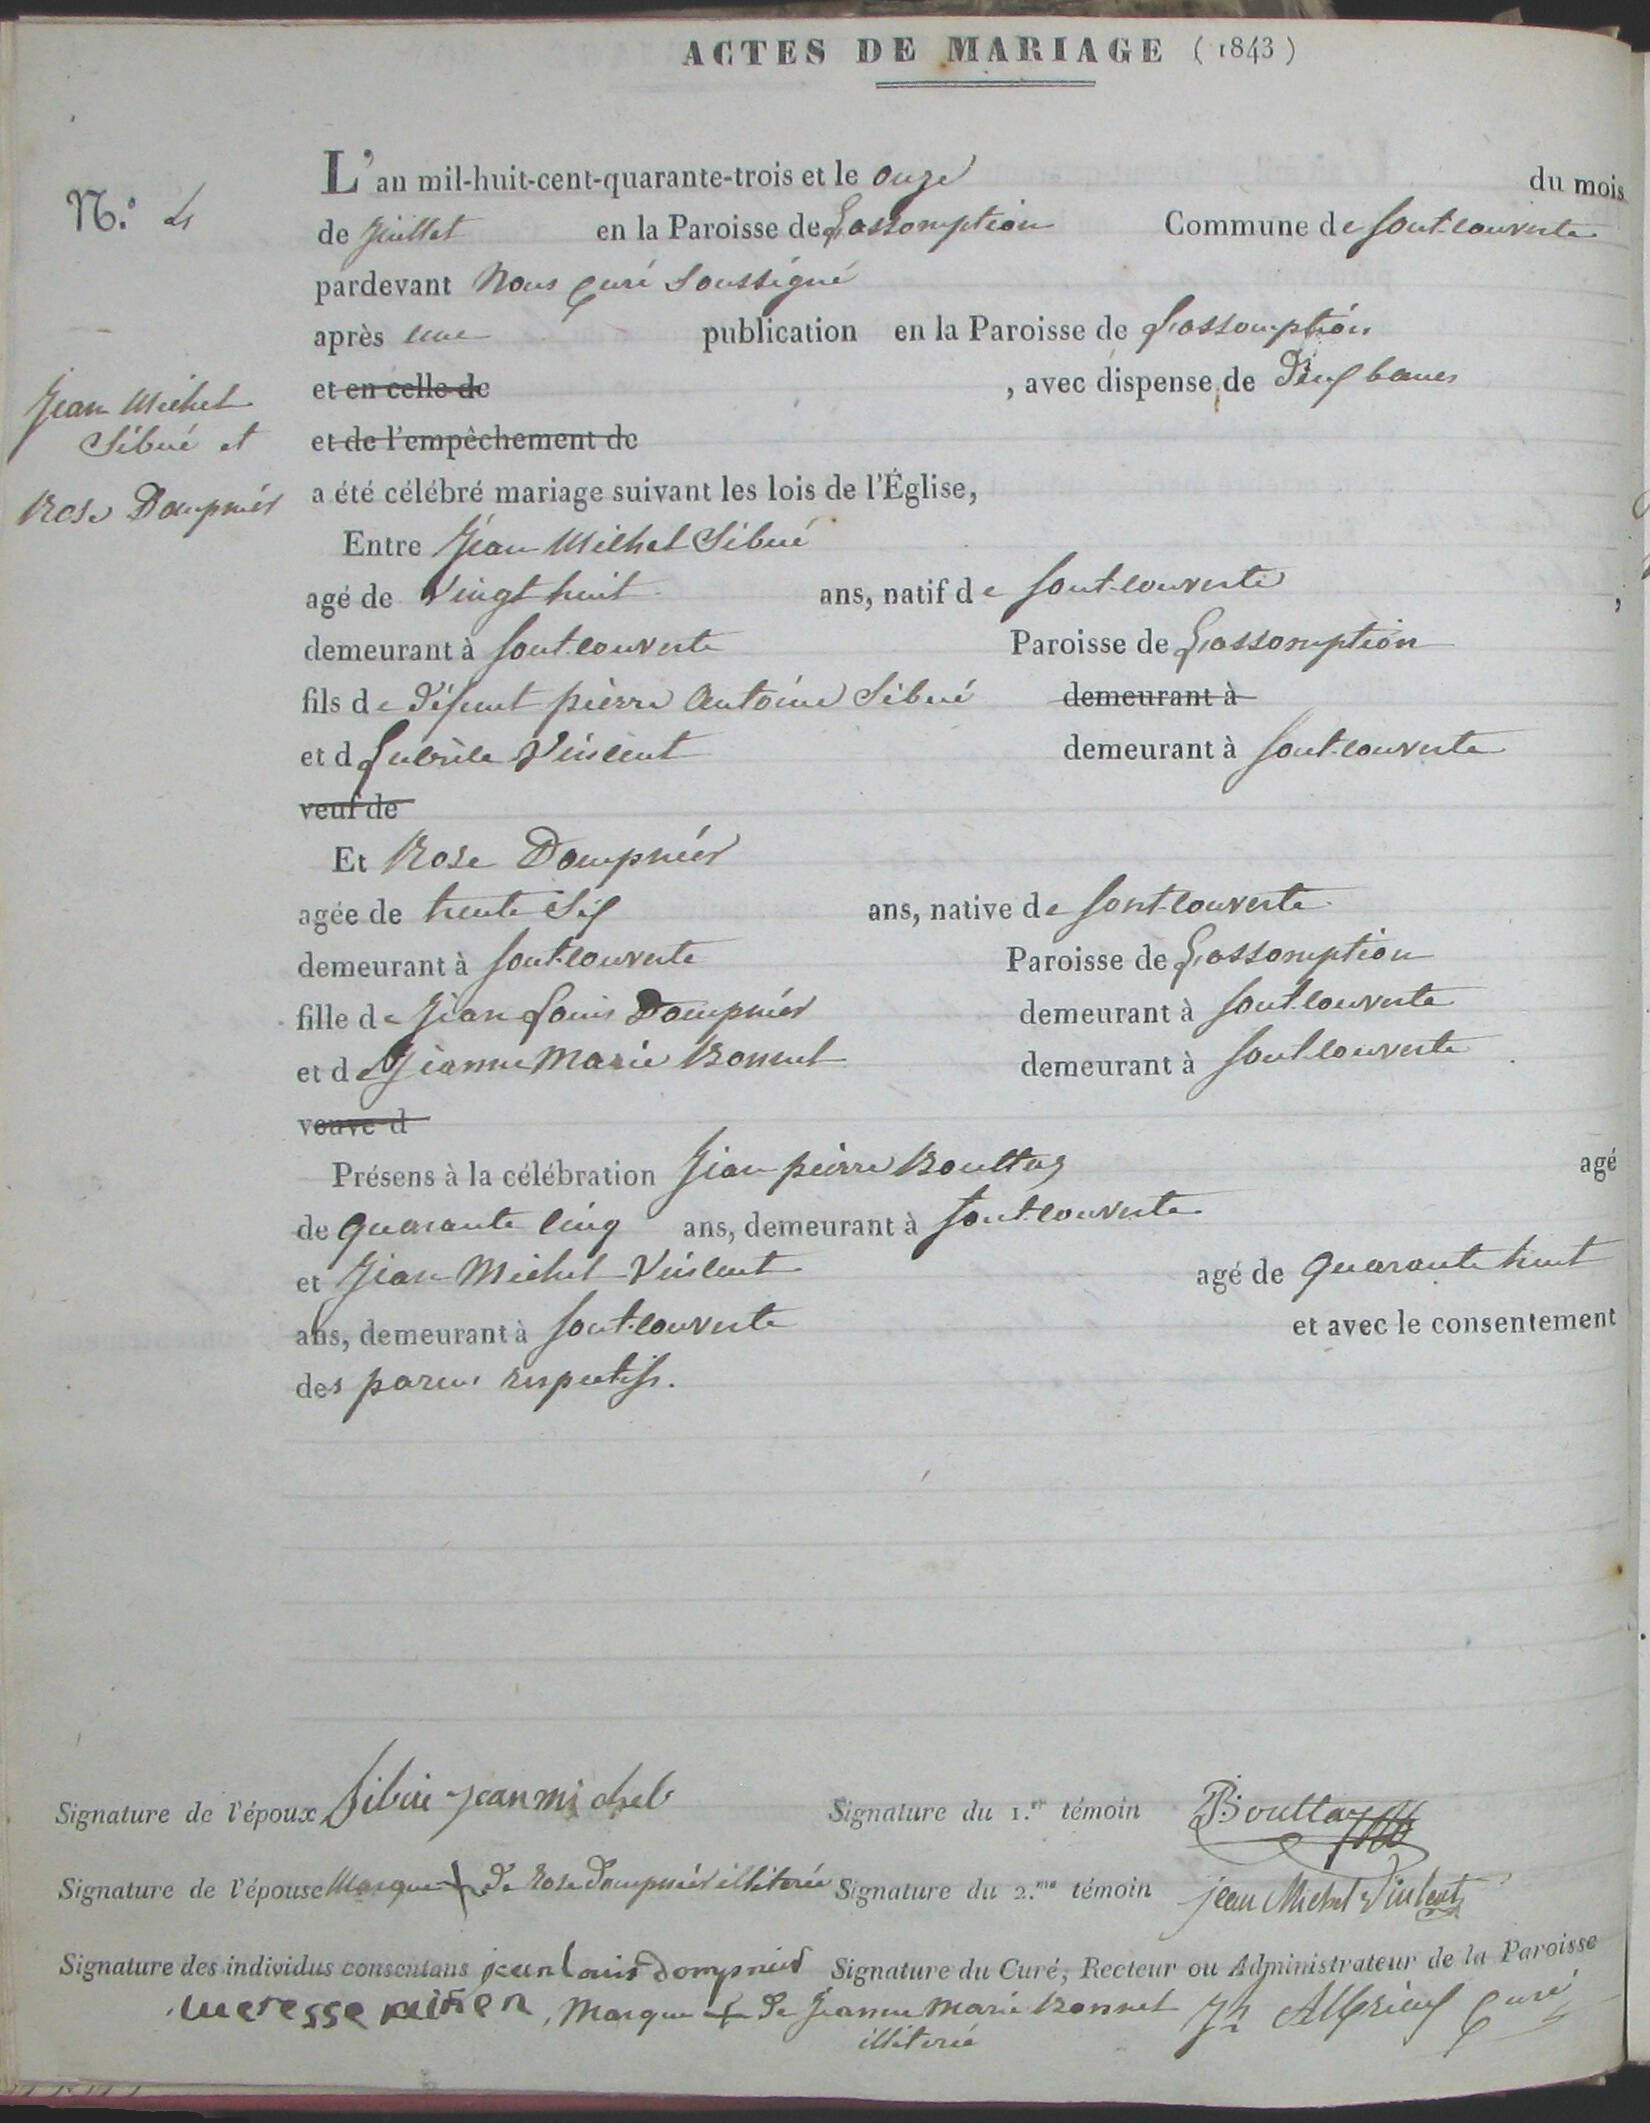 ACTES DE MARIAGE (1843)
N.° 4
L'an mil-huit-cent-quarante-trois et le onze du mois
de juillet en la Paroisse de L'assomption Commune de font-couverte
pardevant Nous Curé Soussigné
après une publication en la Paroisse de L'assomption
et en celle de , avec dispense de deux bancs
et de l'empêchement de
Jean Michel
Sibué et
Rose Dompnier
a été célébré mariage suivant les lois de l'Église,
Entre Jean Michel Sibué
agé de Vingt huit ans, natif de font-couverte ,
demeurant à font-couverte Paroisse de L'assomption
fils de défunt pierre Antoine Sibué demeurant à
et d Lucrèce Vincent demeurant à font-couverte
veuf de
Et Rose Dompnier
agée de trente Six ans, native de font-couverte
demeurant à font-couverte Paroisse de L'assomption
fille de Jean Louis Dompnier demeurant à font-couverte
et de Jeanne Marie Bonnet demeurant à font-couverte
veuve d
Présens à la célébration Jean pierre Bouttaz agé
de quarante cinq ans, demeurant à font-couverte
et Jean Michel Vincent agé de quarante huit
ans, demeurant à font-couverte et avec le consentement
des parens respectifs.
Signature de l'époux Sibué jean michel Signature du 1.er témoin Bouttaz
Signature de l'épouse Marque + de Rose dompnier illitérée Signature du 2.me témoin jean Michel Vincent
Signature des individus consentans jean Louis dompnier Signature du Curé, Recteur ou Administrateur de la Paroisse
Marque + de Jeanne Marie Bonnet Curé
illitérée